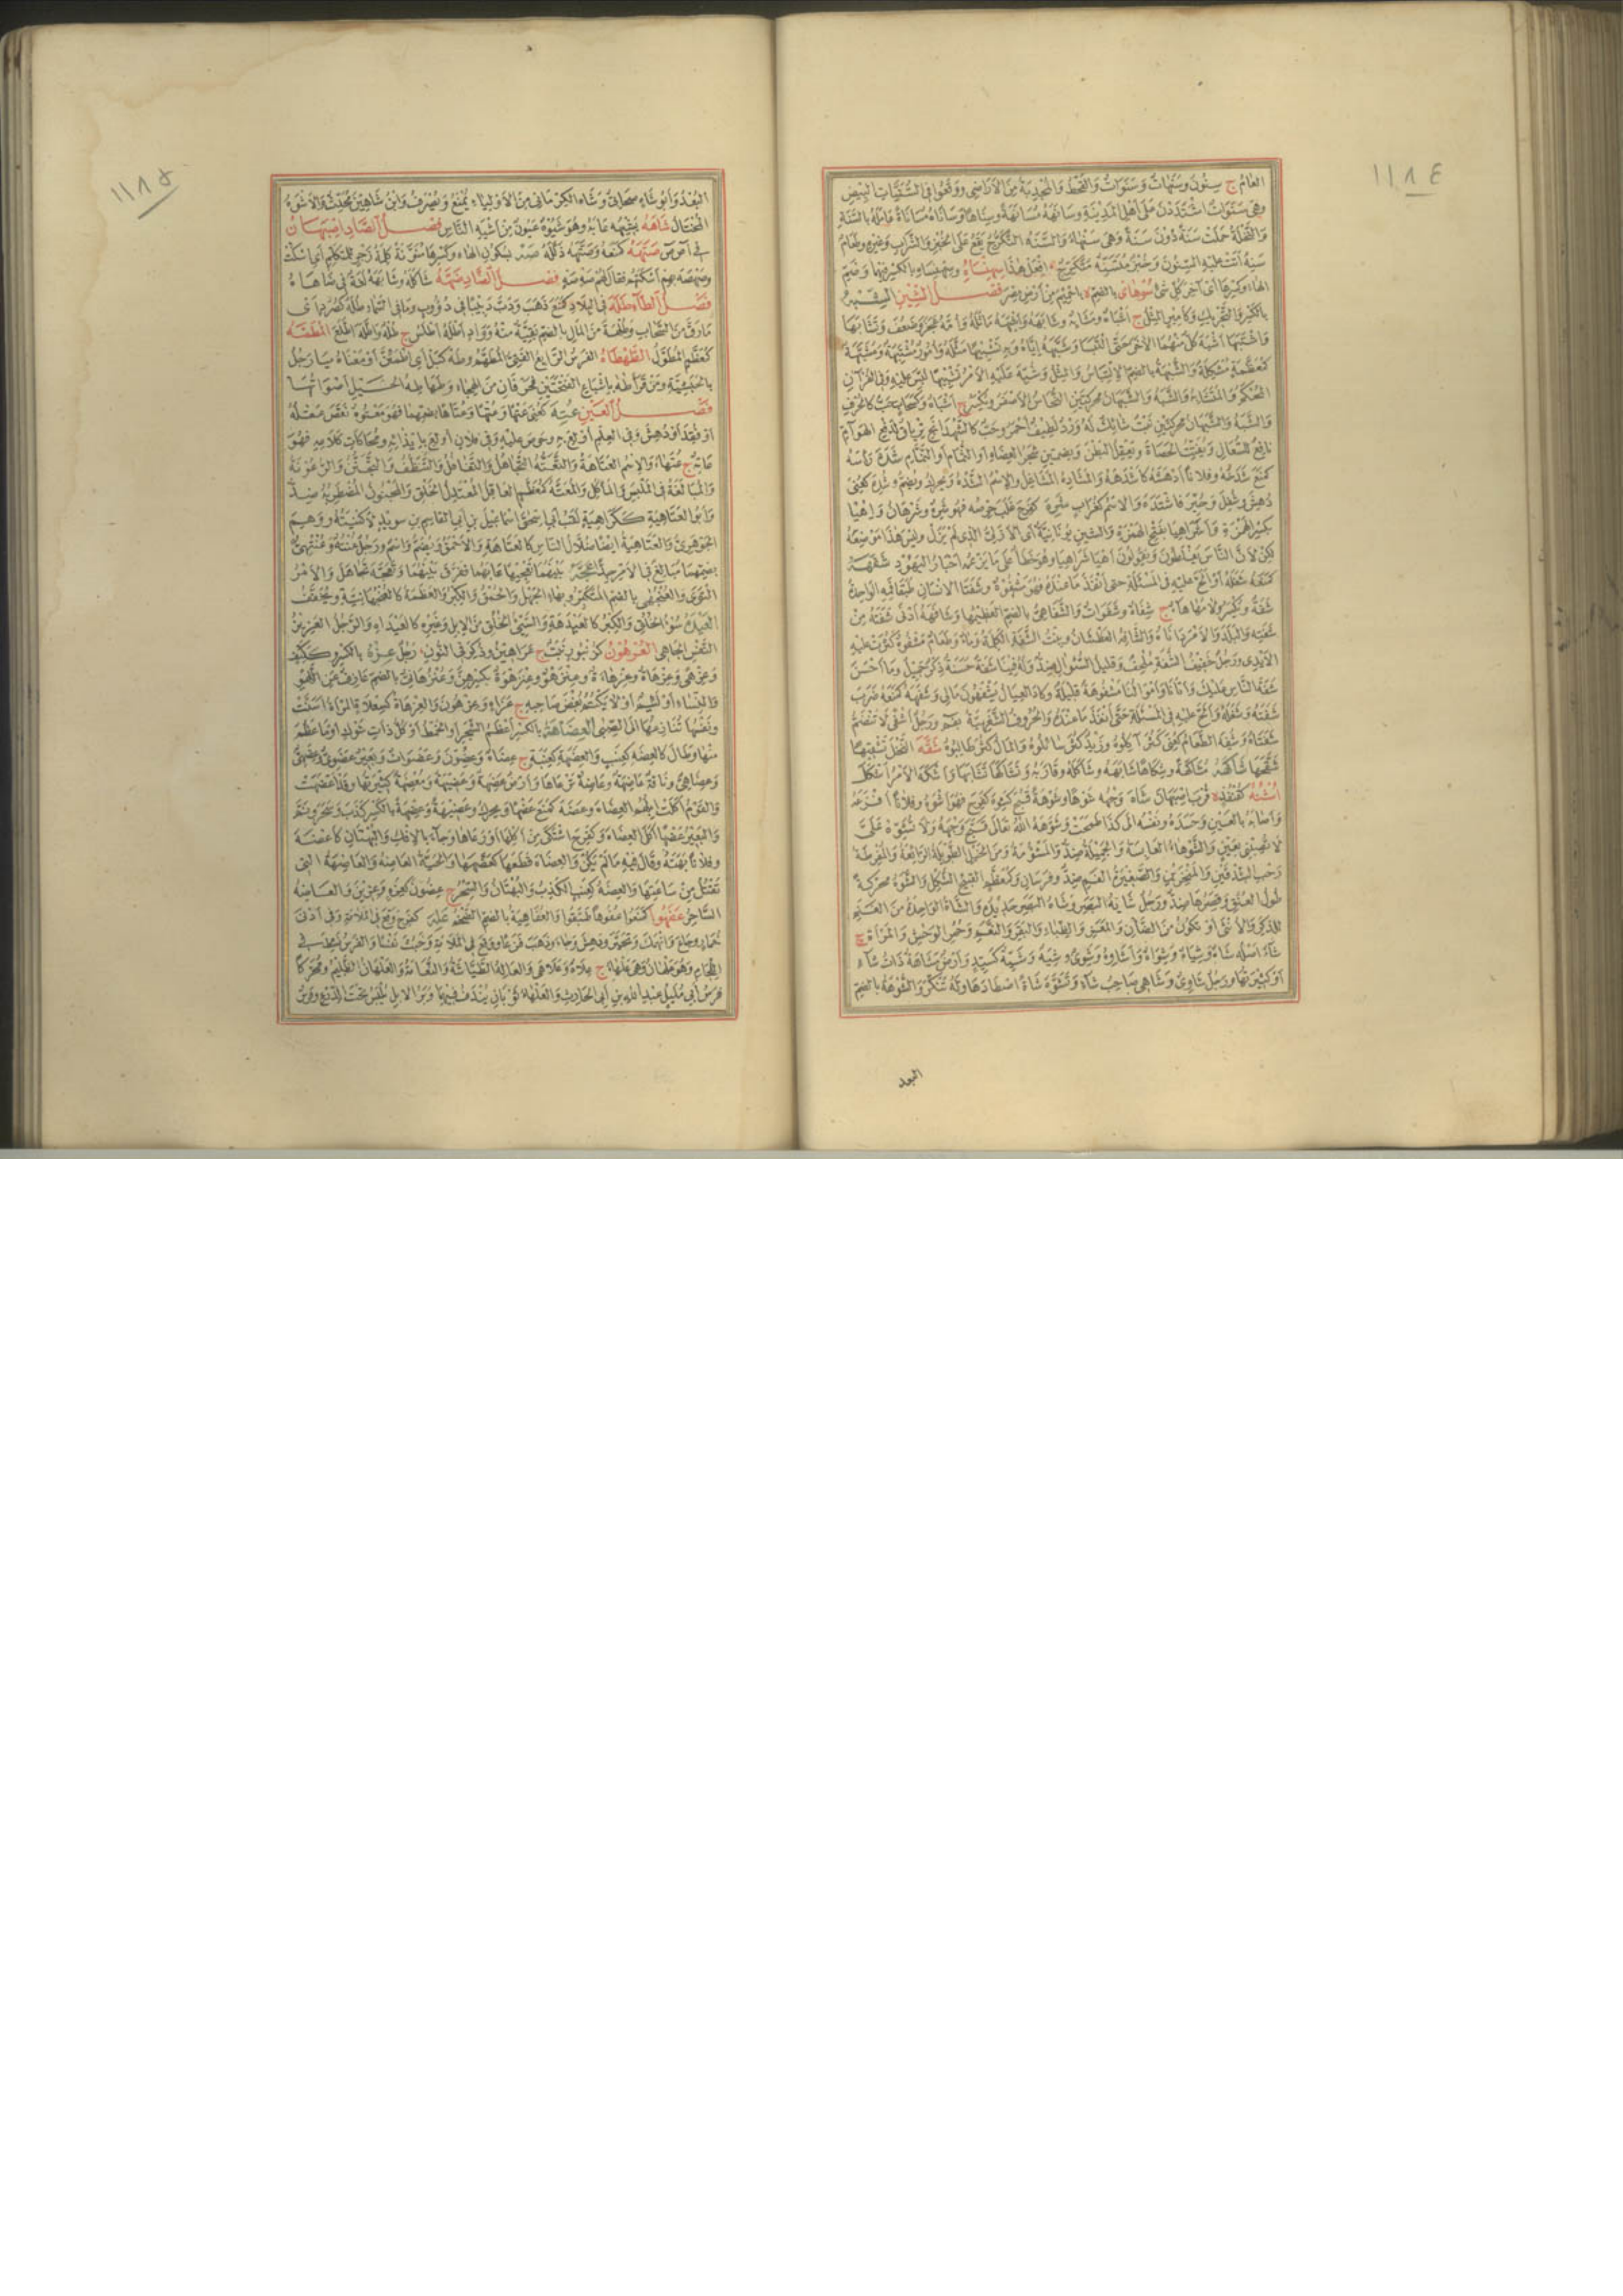 ١١٨٤
العام ج سنون وسنهات وسنوات والقحط والمجدبة من الأراضي ووقعوا في السنيات البيض
وهي سنوات اشتددن على أهل المدينة وسانهه مسانهة وسناها وساناه مساناة عامله بالسنة
والنخلة حملت سنة دون سنة وهي سنهاء والتسنه التكرج يقع على الخبز والشراب وغيره وطعام
سنه أتت عليه السنون وخبز متسنه متكرج افعل هذا سهنساه وسهنساه بالكسر فيهما وضم
الهاء وكسرها أي آخر كل شيء سوهاي بالضم ة باخميم من أرض مصر فصل الشين الشبه
بالكسر والتحريك وكأمير المثل ج أشباه وشابهه وأشبهه ماثله وأمه عجز وضعف وتشابها
واشتبها أشبه كل منهما الآخر حتى التبسا وشبهه إياه وبه تشبيها مثله وأمور مشتبهة ومشبهة
كمعظمة مشكلة والشبهة بالضم الالتباس والمثل وشبه عليه الأمر تشبيها لبس عليه وفي القرآن
المحكم والمتشابه والشبه والشبهان محركتين النحاس الأصفر ويكسر ج أشباه وكسحاب حب كالحرف
والشبه والشبهان محركتين نبت شائك له ورد لطيف أحمر وحب كالشهدانج ترياق لنهش الهوام
نافع للسعال ويفتت الحصاة ويعقل البطن وبضمتين شجر العضاه أو الثمام أو النمام شده رأسه
كمنع شدخه وفلانا أدهشه كأشدهه والمشاده المشاغل والاسم الشده ويحرك ويضم وشده كعني
دهش وشغل وحير فاشتده والاسم كغراب شره كفرح غلب حرصه فهو شره وشرهان وإهيا
بكسر الهمزة وأشر إهيا بفتح الهمزة والشين يونانية أي الأزلي الذي لم يزل وليس هذا موضعه
لكن لأن الناس يغلطون ويقولون أهيا شراهيا وهو خطأ على ما يزعمه أحبار اليهود شفهه
كمنعه شغله أو ألح عليه في المسئلة حتى أنفد ما عنده فهو مشفوه وشفتا الإنسان طبقا فمه الواحدة
شفة ويكسر ولامها هاء ج شفاه وشفوات والشفاهي بالضم العظيمها وشافهه أدنى شفته من
شفته والبلد والأمر داناه والشافه العطشان وبنت الشفة الكلمة وماء وطعام مشفوه كثرت عليه
الأيدي ورجل خفيف الشفة ملحف وقليل السؤال ضد وله فينا شفة حسنة ذكر جميل وما أحسن
شفة الناس عليك وأتانا وأموالنا مشفوهة قليلة وكاد العيال يشفهون مالي وشفهه كمنعه ضرب
شفته وشغله وألح عليه في المسئلة حتى أنفد ما عنده والحروف الشفهية بفم ورجل أشفى لا تنضم
شفتاه وشفه الطعام كعني كثر آكلوه وزيد كثر سائلوه والمال كثر طالبوه شقه النخل تشقيها
شقحها شاكهه مشاكهة وشكاها شابهه وشاكله وقاربه وتشاكها تشابها وأشكه الأمر أشكل
أشنه كقنفذ ة قرب أصبهان شاه وجهه شوها وشوهة قبح كشوه كفرح فهو أشوه وفلانا أفزعه
وأصابه بالعين وحسده ونفسه إلى كذا طمحت وشوهه الله تعالى قبح وجهه ولا تشوه علي
لا تصبني بعين والشوهاء العابسة والجميلة ضد والمشؤمة ومن الخيل الطويلة الرائعة والمفرطة
رحب الشدقين والمنخرين والصغيرة الفم ضد وفرسان وكمعظم القبيح الشكل والشوه محركة
طول العنق وقصرها ضد ورجل شائه البصر وشاه البصر حديده والشاة الواحدة من الغنم
للذكر والأنثى أو تكون من الضأن والمعز والظباء والبقر والنعام وحمر الوحش والمرأة ج
شاء أصله شاه وشياه وشواه وأشاوه وشوي وشيه وشيه كسيد وأرض مشاهة ذات شاء
أو كثيرتها ورجل شاوي وشاهي صاحب شاء وتشوه شاة اصطادها وله تنكر والشوهة بالضم
البعد
١١٨٥
البعد وأبو شاه صحابي وشاه الكرماني من الأولياء يمنع ويصرف وابن شاهين محدث والأشوه
المختال شاهه يشيهه عابه وهو شيوه عيون من أشيه الناس فصل الصاد أصبهان
في أ ص ص صبهه كمنعه وصتهه ذلله صه بسكون الهاء وكسرها منونة كلمة زجر للمتكلم أي اسكت
وصهصه بهم أسكتهم فقال لهم صه صه فصل الضاد ضهه شاكله وشابهه لغة في ضاهاه
فصل الطاء طله في البلاد كمنع ذهب ودب دبيبا في دؤوب وما في السماء طله كصرد أي
ما رق من السحاب وطلهة من المال بالضم بقية منه وواد أطله أطلس ج طله وأطله أطلع المطمه
كمعظم المطول الطهطاه الفرس الرائع الفتي المطهم وطه كبل أي اطمئن أو معناه يا رجل
بالحبشية ومن قرأ طه بإشباع الفتحتين فحرفان من الهجاء وطهاطه الخيل أصواتها
فصل العين عته كعني عتها وعتها وعتاها بضمهما فهو معتوه نقص عقله
أو فقد أو دهش وفي العلم أولع به وحرص عليه وفي فلان أولع بإيذائه ومحاكاة كلامه فهو
عاته ج عتهاء والاسم العتاهة والتعته التجاهل والتغافل والتنظف والتجنن والرعونة
والمبالغة في الملبس والمأكل والمعته كمعظم العاقل المعتدل الخلق والمجنون المضطربه ضد
وأبو العتاهية ككراهية لقب أبي إسحق إسماعيل بن أبي القاسم بن سويد لا كنيته ووهم
الجوهري والعتاهية أيضا ضلال الناس كالعتاهة والأحمق ويضم واسم ورجل عنته وعنتهي
بضمهما مبالغ في الأمر جدا عجه بينهما تعجيها عابهما ففرق بينهما وتعجه تجاهل والأمر
التوى والعنجهي بالضم المتكبر وبهاء الجهل والحمق والكبر والعظمة كالعنجهانية ويخفف
العيده سوء الخلق والكبر كالعيدهة والسيئ الخلق من الإبل وغيره كالعيداه والرجل العزيز
النفس الجافي العرهون كزنبور نبت ج عراهين وذكر في النون رجل عزه بالكسر وككتف
وعزهى وعزهاة وعزهاءة وعنزهوة بكسرهن وعنزهاني بالضم عازف عن اللهو
والنساء أو لئيم أو لا يكتم بغض صاحبه ج عزاه وعزهون والعزهاة كسعلاة المرأة أسنت
ونفسها تنازعها إلى الصبى العضاهة بالكسر أعظم الشجر أو الخمط أو كل ذات شوك أو ما عظم
منها وطال كالعضه كعنب والعضهة كعنبة ج عضاه وعضون وعضوات وبعير عضوي وعضهي
وعضاهي وناقة عاضهة وعاضه ترعاها وأرض عضهة وعضيهة ومعضهة كثيرتها وقد أعضهت
والقوم أكلت إبلهم العضاه وعضه كمنع عضها ويحرك وعضيهة وعضهة بالكسر كذب وسحر ونم
والبعير عضها أكل العضاه وكفرح اشتكى من أكلها أو رعاها وجاء بالإفك والبهتان كأعضه
وفلانا بهته وقال فيه ما لم يكن والعضاه قطعها كعضهها والحية العاضه والعاضهة التي
تقتل من ساعتها والعضه كعنب الكذب والبهتان والسحر ج عضون كعزه وعزين والعاضه
الساحر عفهوا كمنعوا عفوها طبقوا والعفاهية بالضم الضخم عله كفرح وقع في الملامة وفي أدنى
خمار وجاع وانهمك وتحير ودهش وجاء وذهب فزعا ووقع في الملامة وخبث نفسا والفرس نشط في
اللجام وهو علهان وهي علهى ج علاه وعلاهى والعاله الطياشة والنعامة والعلهان الظليم ومحركا
فرس أبي مليل عبد الله بن أبي الحارث والعلهاء ثوبان يندف فيهما وبر الإبل يلبس تحت الدرع وفرس